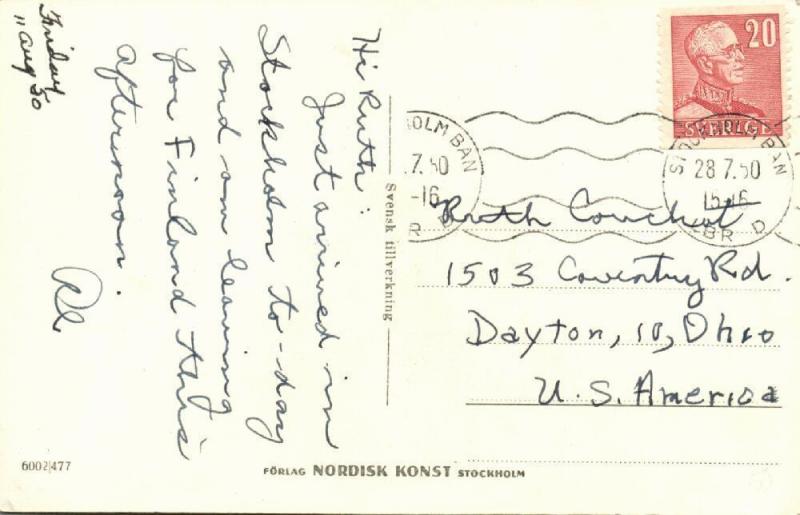 Friday
11 Aug 50
Hi Ruth:
Just arrived in
Stockholm to-day
and am leaving
for Finland this
afternoon.
Al
6002|477
Svensk tillverkning
FÖRLAG NORDISK KONST STOCKHOLM
20
SVERIGE
HOLM BAN
.7.50
-16
R
STOCKHOLM BAN
28 7.50
15-16
BR D
Ruth Couchot
1503 Coventry Rd.
Dayton, 10, Ohio
U.S. America